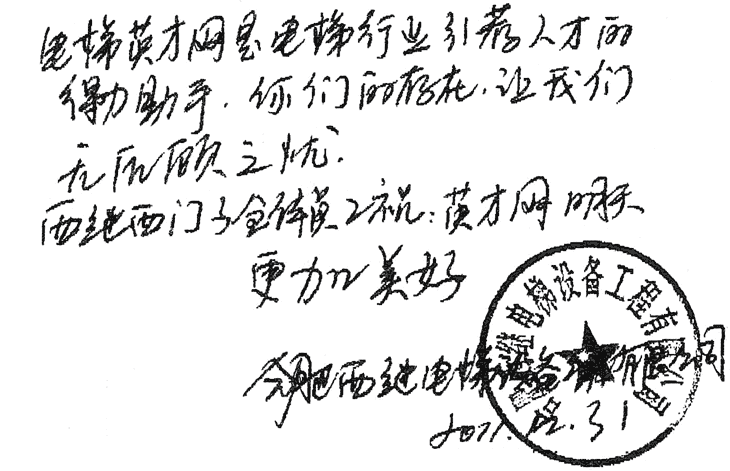 电梯英才网是电梯行业引荐人才的
得力助手.你们的存在.让我们
无后顾之忧.
西继西门子全体员工祝:英才网明天
更加美好
继电梯设备工程有
合肥西继电梯设备 有限公司
2011.12.31